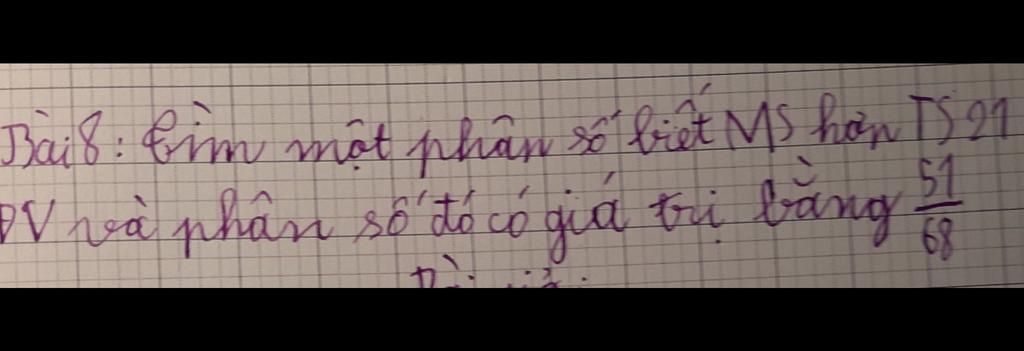 Bài 8: Tìm một phân số biết MS hơn TS 21
ĐV và phân số đó có giá trị bằng 51/68